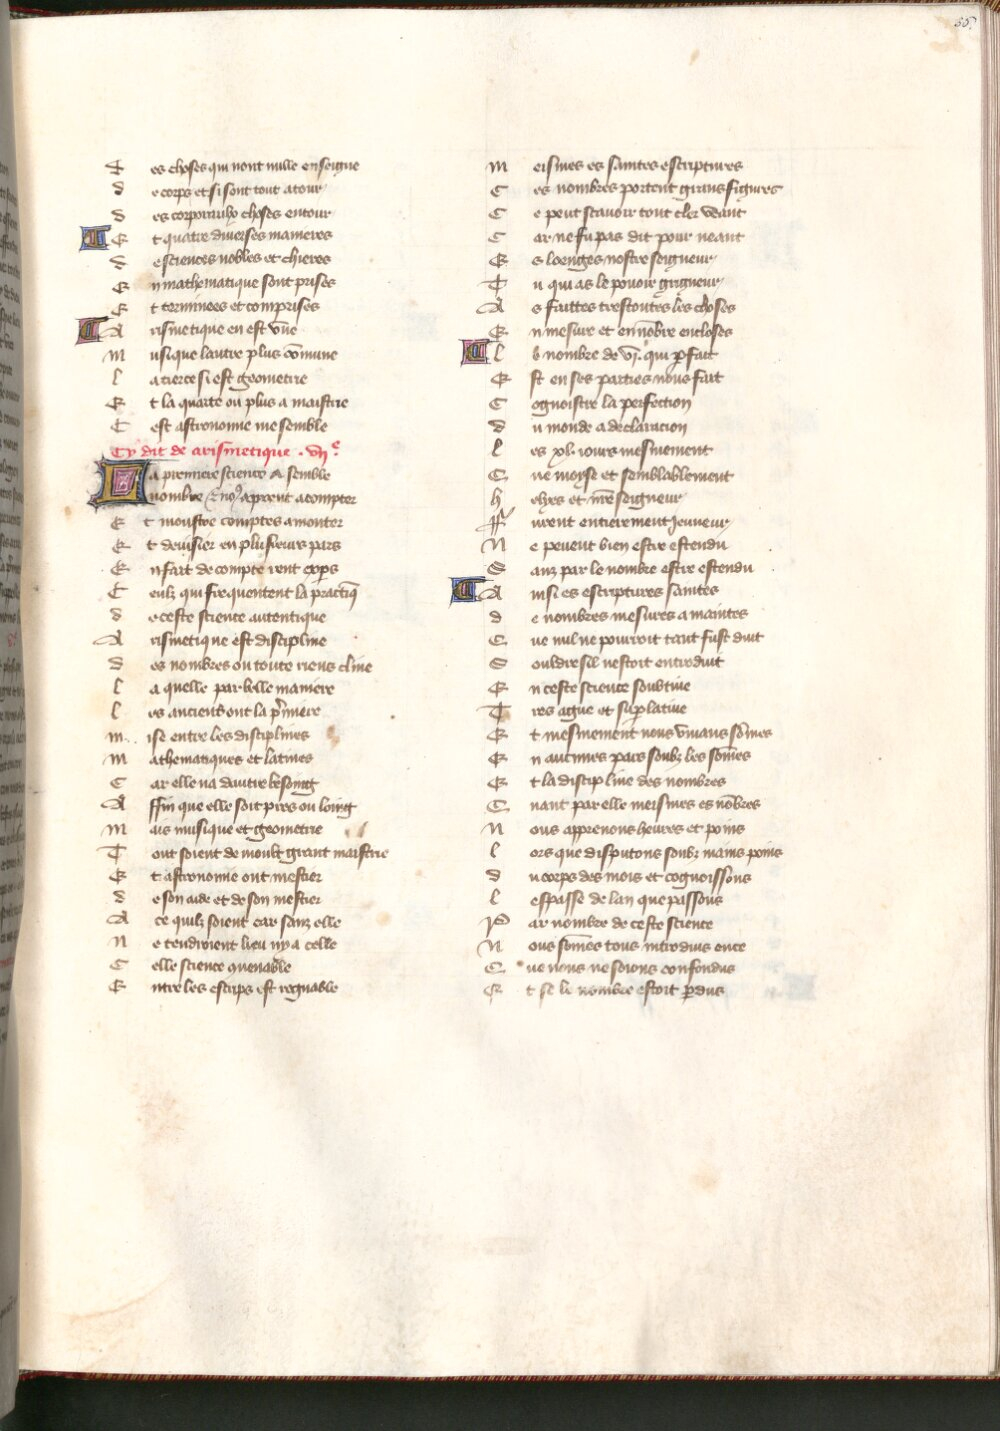 55
Les choses qui nont nulle enseigne
de corps et si sont tout atour
des corporaulx choses entour
Et quatre diverses manieres
de sciences nobles et chieres
En mathematique sont prises
Et terminees et comprises
Arismetique en est vne
Musique lautre plus cōmune
la tierce si est geometrie
Et la quarte ou plus a maistrie
Cest astronomie me semble
Cy dit de arismetique . vijᵉ
La premiere science semble
nombre aprent a compter
Et monstre comptes a monter
Et deuisier en plusieurs pars
En fait de compte
Ceulz qui frequentent la practiq̄
de ceste science autentique
Arismetique est discipline
des nombres ou toute riens cline
la quelle par belle maniere
les anciens ont la p̄miere
mise entre les disciplines
mathematiques et latines
Car elle na dautre besoing
Affin que elle soit pres ou loing
mais musique et geometrie
Tout soient de moult grant maistrie
Et astronomie ont mestier
de son aide et de son mestier
A ce quilz soient car sanz elle
Ne tendroient lieu ny a celle
Celle science quenable
Entre les escrips est regnable
meismes es saintes escriptures
Ces nombres portent grans figures
Ce peut scauoir tout cler veant
Car ne fu pas dit pour neant
Es loenges nostre seigneur
Tu qui as le pouoir grigneur
As faittes trestoutes les choses
En mesure et en nōbre encloses
le nombre de vj. qui p̄fait
Est en ses parties nous fait
Cognoistre la perfection
du monde a declaracion
les xl. iours mesmement
Que moyse et semblablement
helyes et nr̄e seigneur
ffurent entierement jeuneur
Ne peuent bien estre estendu
Sanz par le nombre estre estendu
Ainsi es escriptures saintes
de nombres mesures a maintes
Que nul ne pourroit tant fust duit
Souldre sil nestoit entroduit
En ceste science soubtiue
Tres ague et sup̄latiue
Et mesmement nous viuans sōmes
En aucunes pars soubz les sōmes
Et la discipline des nombres
Quant par elle meismes es nōbres
nous apprenons heures et poins
lors que disputons soubz mains poins
du corps des mois et cognoissons
lespasse de lan que passons
Par nombre de ceste science
Nous sōmes tous introduis en ce
Que nous ne soions confondus
Et se le nombre estoit p̄dus